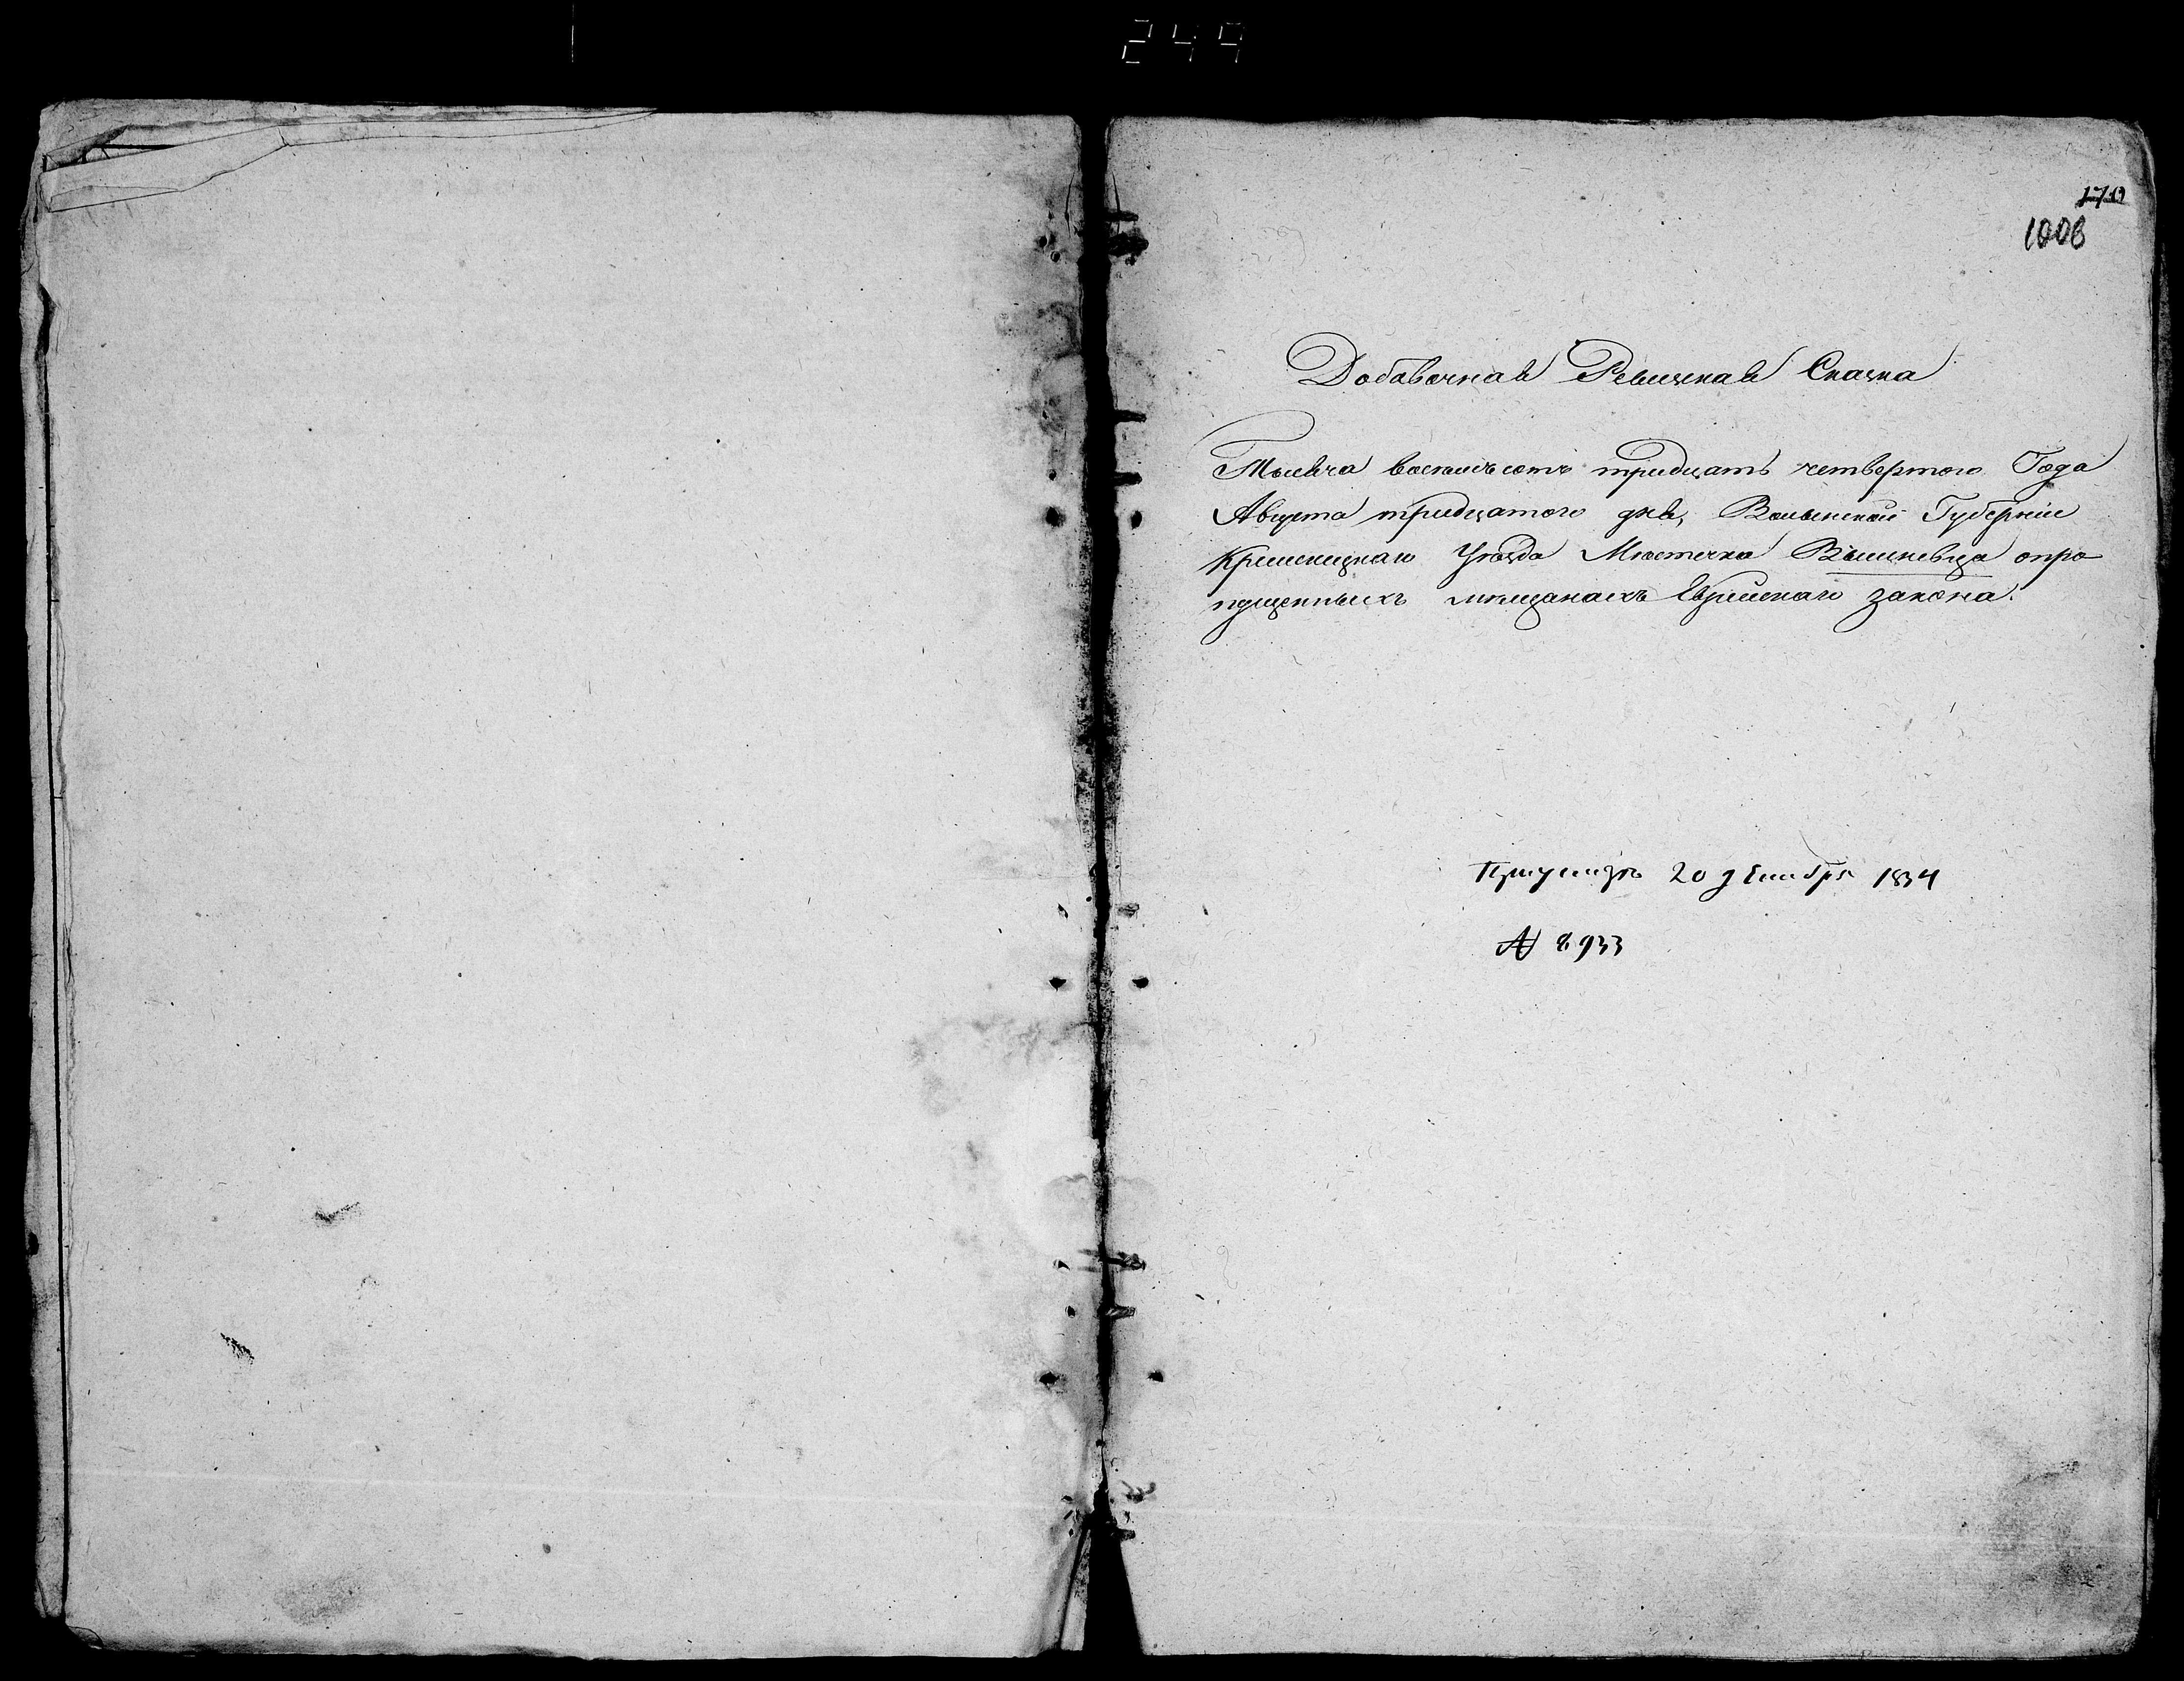 249
1719
1006
Добавочная Ревизская Сказка
Тысяча восемьсотъ тридцать четвертого Года
Августа тридцатого дня, Волынской Губерніи
Кременецкаго Уѣзда Мѣстечка Вышневца опро
пущенныхъ мѣщанахъ Еврейскаго закона.
20 декабря 1834
№ 8933